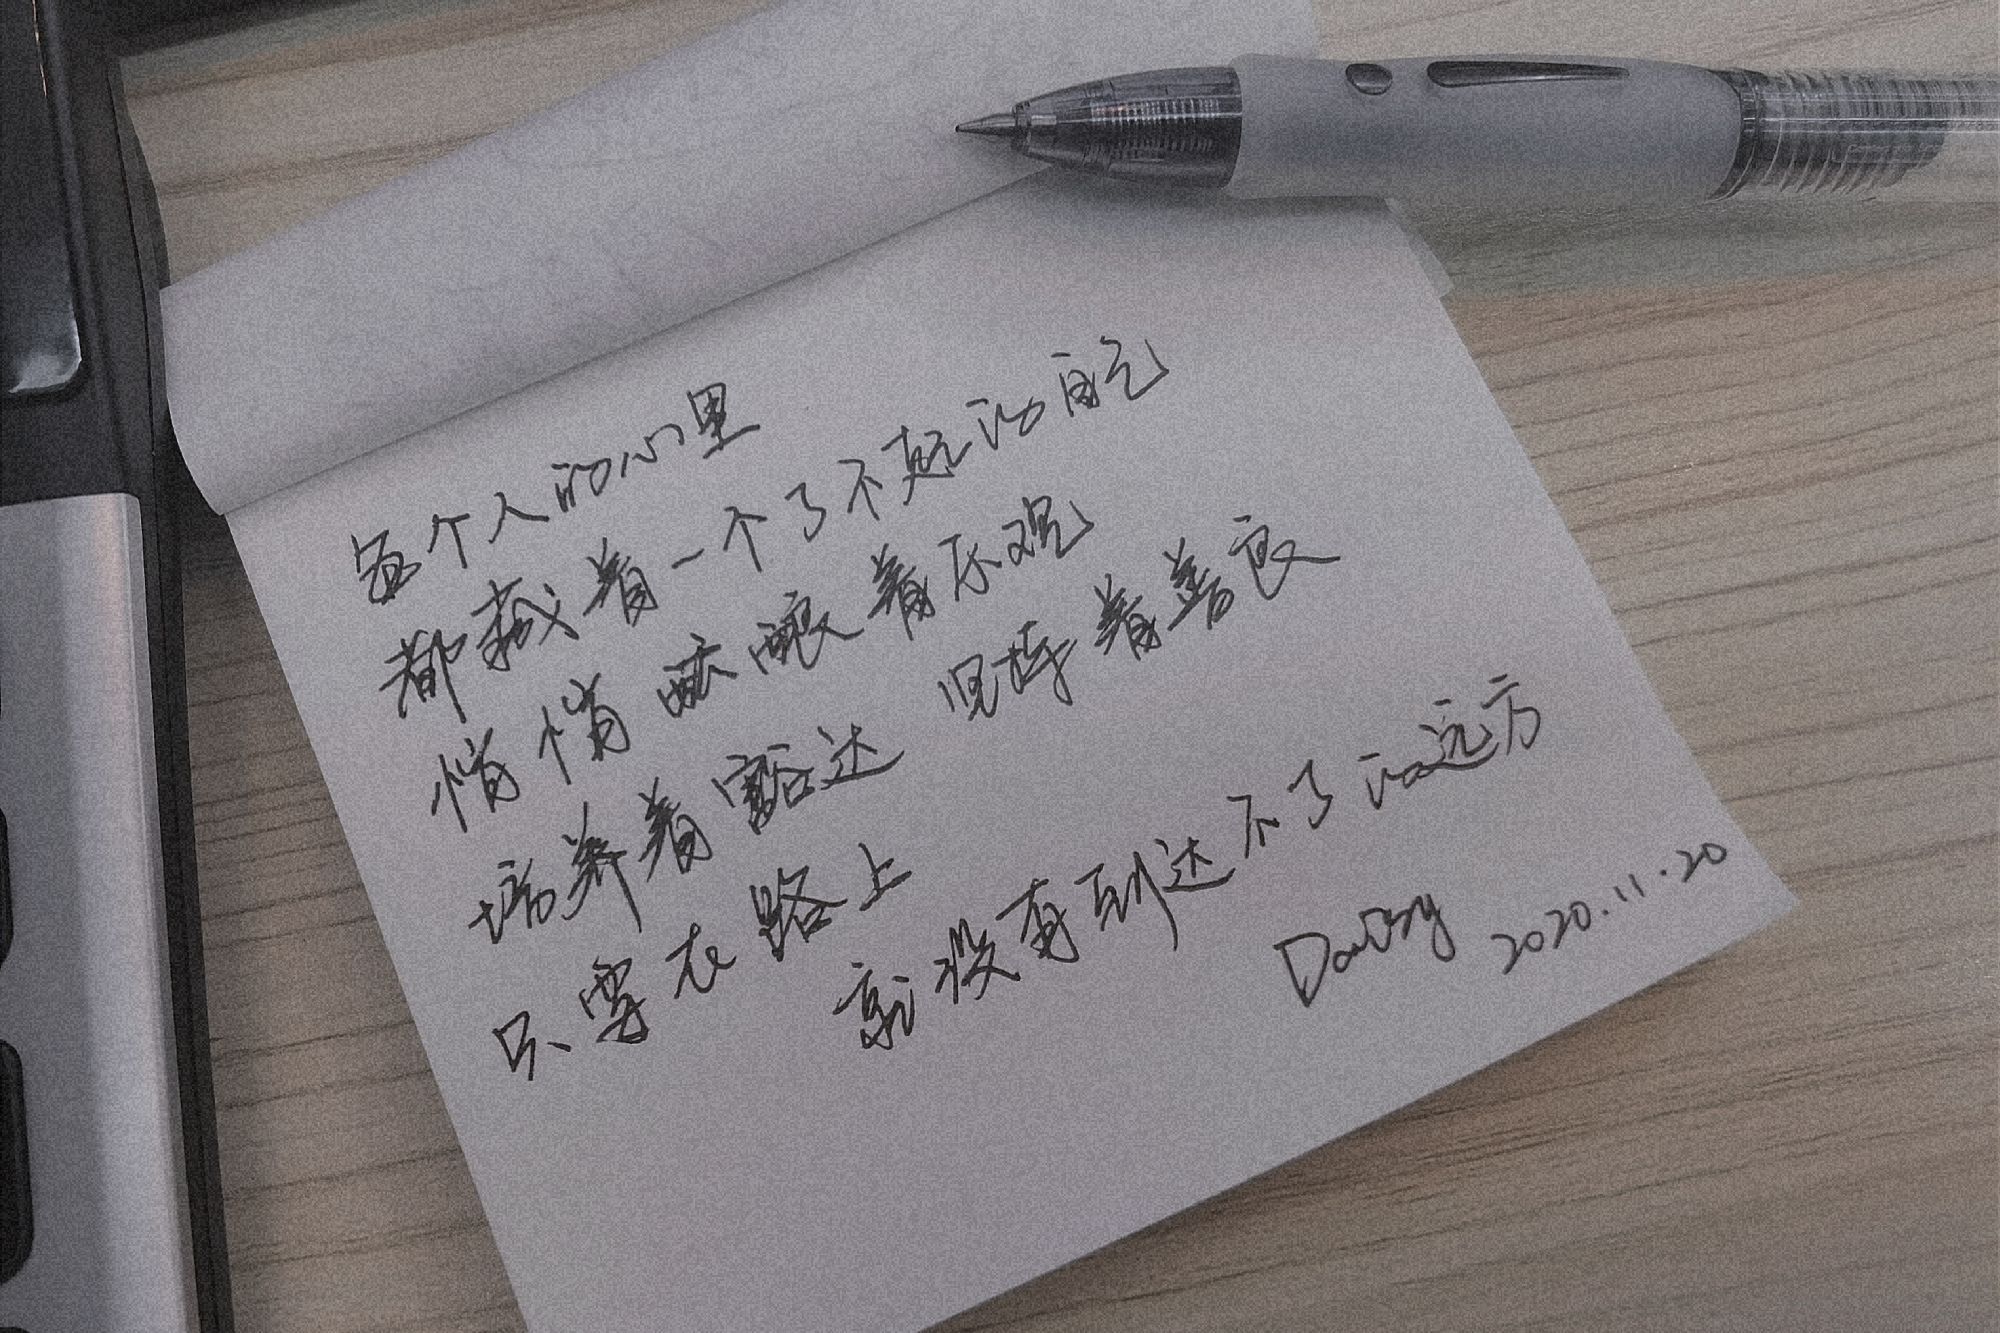 每个人的心里
都藏着一个了不起的自己
悄悄酝酿着乐观
培养着豁达 坚持着善良
只要在路上
就没有到达不了的远方
2020.11.20